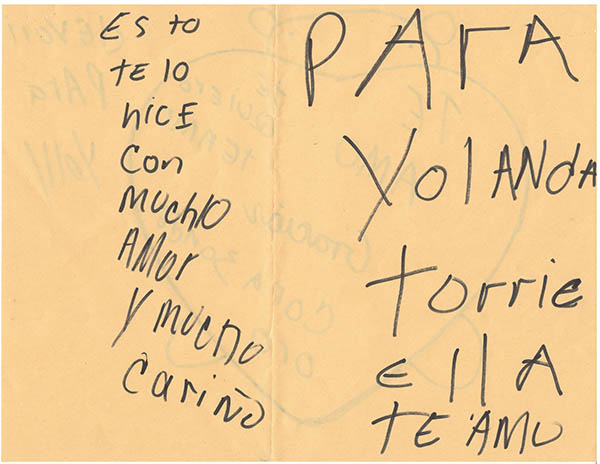 ESto
te lo
hicE
con
mucho
AMor
y mucho
cariño
PArA
YolANdA
torrie
ellA
TE AMO